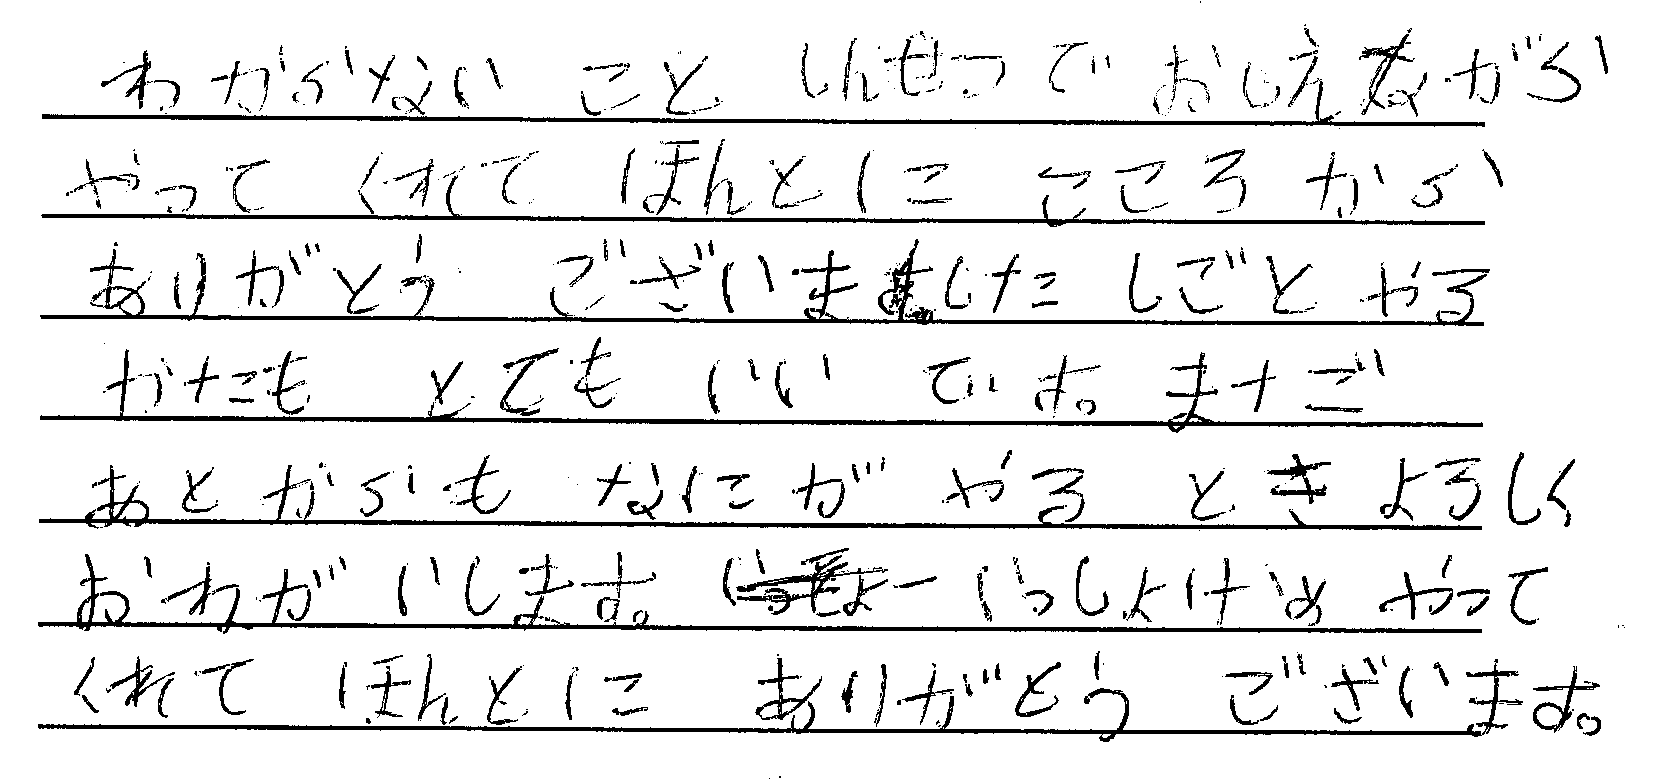 わからない こと しんせつで おしえながら
やって くれて ほんとに こころ から
ありがとう ございました しごと やる
かたも とても いい です。まだご
あと からも なにが やる とき よろしく
おわがいします。 いっしょけいめ やって
くれて ほんとに ありがとう ございます。